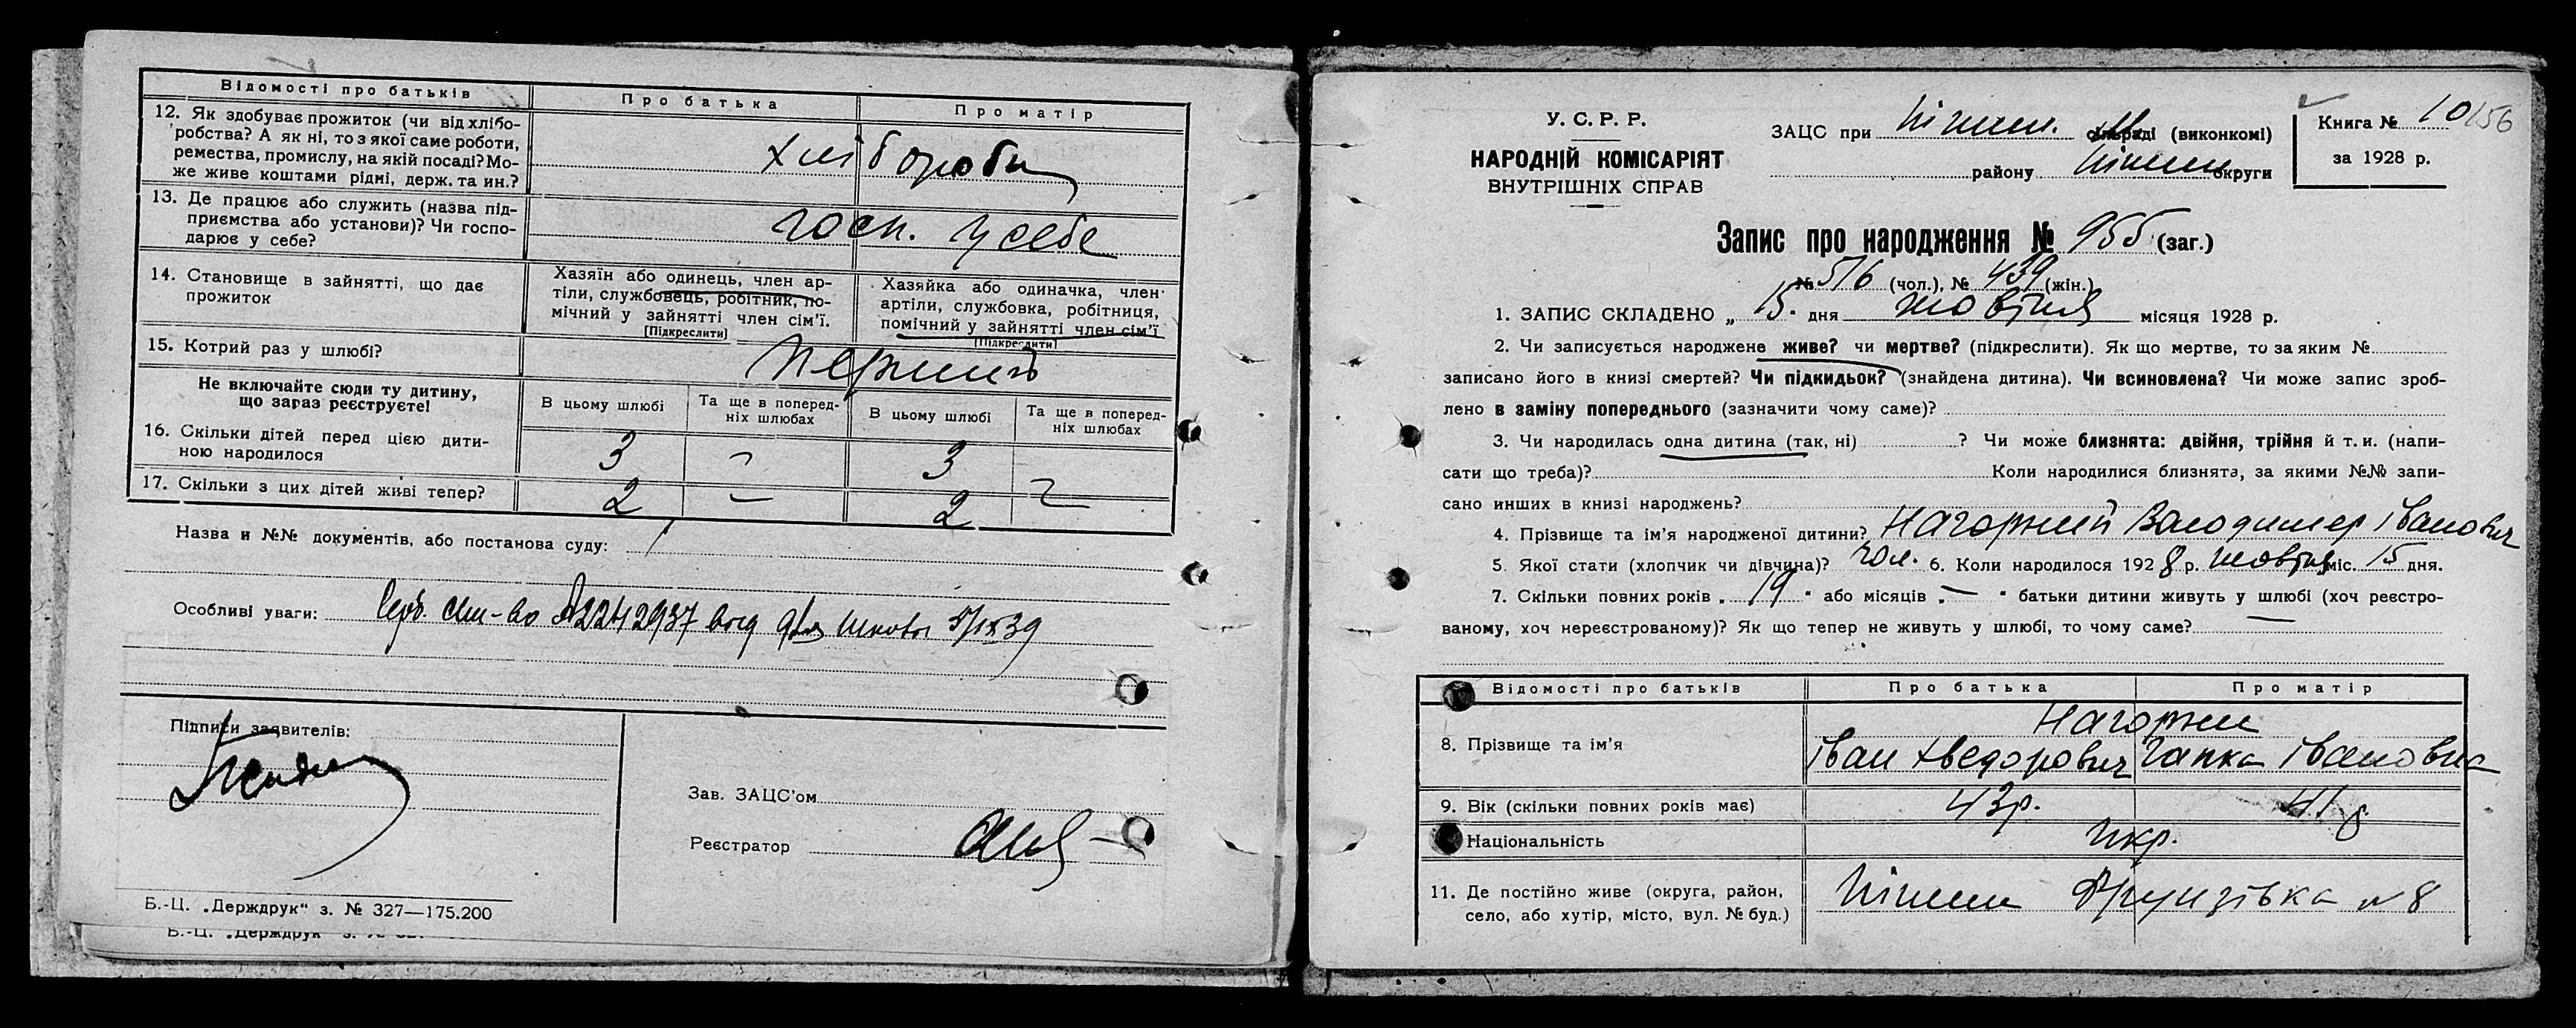 Відомості про батьків
Про батька
Про матір
12. Як здобуває прожиток (чи від хлібо-
робства? А як ні, то з якої саме роботи,
ремества, промислу, на якій посаді? Мо-
же живе коштами рідні, держ. та ин.?
хлібороби
13. Де працює або служить (назва під-
приємства або установи)? Чи госпо-
дарює у себе?
госп. у себе
14. Становище в зайнятті, що дає
прожиток
Хазяїн або одинець, член ар-
тіли, службовець, робітник, по-
мічний у зайнятті член сім'ї.
[Підкреслити]
Хазяйка або одиначка, член
артіли, службовка, робітниця,
помічний у зайнятті член сім'ї
[Підкреслити]
15. Котрий раз у шлюбі?
Не включайте сюди ту дитину,
що зараз реєструєте!
В цьому шлюбі
Та ще в поперед-
ніх шлюбах
В цьому шлюбі
Та ще в поперед-
ніх шлюбах
16. Скільки дітей перед цією дити-
ною народилося
3 — 3
17. Скільки з цих дітей живі тепер?
2 — 2 —
Назва и №№ документів, або постанова суду:
Особливі уваги:
Підписи заявителів:
Зав. ЗАЦС'ом
Реєстратор
Б.-Ц. „Держдрук" з. № 327—175.200
У. С. Р. Р.
НАРОДНІЙ КОМІСАРІЯТ
ВНУТРІШНІХ СПРАВ
ЗАЦС при Ніжин. сільраді (виконкомі)
району Ніжин округи
Книга № 10
156
за 1928 р.
Запис про народження № 955 (заг.)
№ 516 (чол.), № 439 (жін.)
1. ЗАПИС СКЛАДЕНО „ 15. дня жовтня місяця 1928 р.
2. Чи записується народжене живе? чи мертве? (підкреслити). Як що мертве, то за яким №
записано його в книзі смертей? Чи підкидьок? (знайдена дитина). Чи всиновлена? Чи може запис зроб-
лено в заміну попереднього (зазначити чому саме)?
3. Чи народилась одна дитина (так, ні) ? Чи може близнята: двійня, трійня й т. и. (напи-
сати що треба)? Коли народилися близнята, за якими №№ запи-
сано инших в книзі народжень?
4. Прізвище та ім'я народженої дитини? Нагорний Володимер Іванович
5. Якої стати (хлопчик чи дівчина)? чол. 6. Коли народилося 1928 р. жовтня міс. 15 дня.
7. Скільки повних років „ 19 " або місяців „ — " батьки дитини живуть у шлюбі (хоч реєстро-
ваному, хоч нереєстрованому)? Як що тепер не живуть у шлюбі, то чому саме? —
Відомості про батьків
Про батька
Про матір
8. Прізвище та ім'я
Нагорни
Іван Хведорович
Гапка Івановна
9. Вік (скільки повних років має)
43р.
41 р
Національність
Укр.
11. Де постійно живе (округа, район,
село, або хутір, місто, вул. № буд.)
Ніжин
№ 8